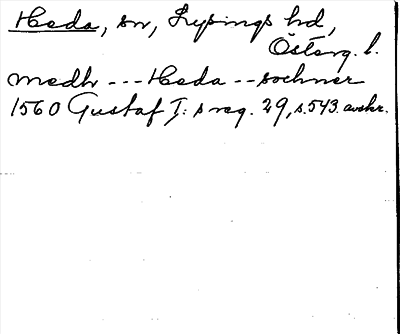 Heda, sn, Lysings hd,
Österg. l.
medh --- Heda -- sochner
1560 Gustaf I:s reg. 29, s. 543. avskr.